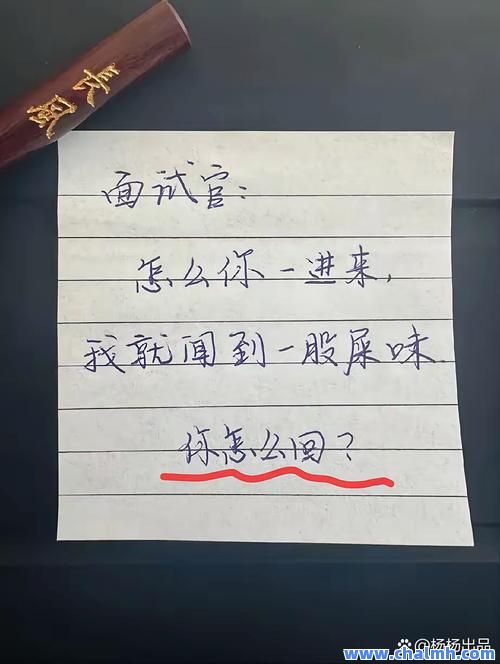 長風
面试官:
怎么你一进来,
我就闻到一股屎味.
你怎么回?
@杨杨出品
www.chalmh.com